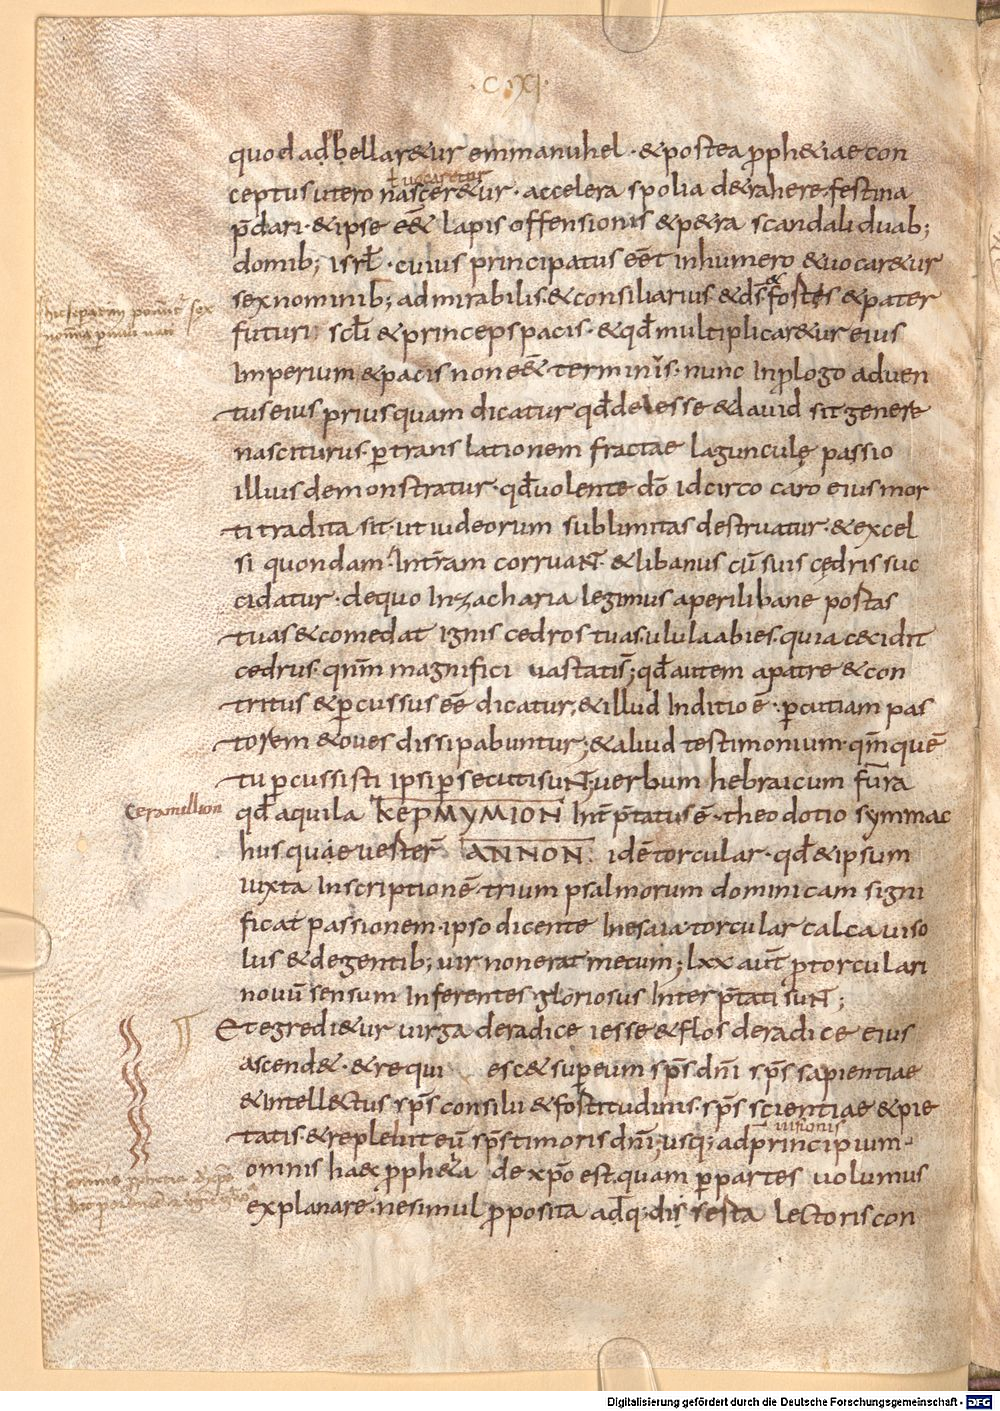 · C XI ·
quod ad bellaretur emmanuhel · & postea p̱ph&iae con
uocaretur
ceptus utero nascer&ur · accelera spolia detrahere festina
p̄dari · & ipse eē& lapis offensionis & p&ra scandali duab;
domib; isrł · cuius principatus eēt in humero & uocar&ur
sex nominib; admirabilis & consiliarius & ds̄ fortis & pater
futuri scłi & princeps pacis · & qđ multiplicar&ur eius
Imperium & pacis non eē& terminus · nunc In p̱logo aduen
tus eius prius quam dicatur qđ de iesse & dauid sit genere
nasciturus · p̱ translationem fractae lagunculę passio
illius demonstratur · qđ uolente dō idcirco caro eius mor
ti tradita sit · ut iudeorum sublimitas destruatur · & excel
si quondam · Intr̄am corruaNT · & libanus cū suis cędris suc
cidatur · de quo In zacharia legimus aperi libane portas
tuas & comedat ignis cedros tuas · ulula abies · quia cecidit
cedrus · qnm̄ magnifici uastati s̄; qđ autem a patre & con
tritus & p̱cussus eē dicatur; & illud Inditio ē · p̱cutiam pas
torem & oues dissipabuntur; & aliud testimonium · qm̄ quē
tu p̱cussisti ipsi p̱secuti suNT; uerbum hebraicum fūra
ceramillion
qđ aquila KEPMYMION Int̄p̄tatus ē · theodotio symmac
hus quae uester ANNON · id ē torcular · qđ & ipsum
iuxta Inscriptionē trium psalmorum dominicam signi
ficat passionem · ipso dicente In esaia · torcular calcaui so
lus & de gentib; uir non erat mecum; lxx aūt p̱ torculari
nouū sensum Inferentes gloriosus Interp̄tati suNT;
Et egredi&ur uirga de radice iesse & flos de radice eius
ascend& · & requiesc& sup eum sp̄s dn̄i sp̄s sapientiae
& intellectus sp̄s consilii & fortitudinis · sp̄s scientiae & pie
uisionis
tatis · & replebit eū sp̄s timoris dn̄i; usq; ad principium
omnis haec p̱ph&ia de xp̄o est · quam p̱ partes uolumus
explanare · ne simul p̱posita adq; dis serta lectoris con